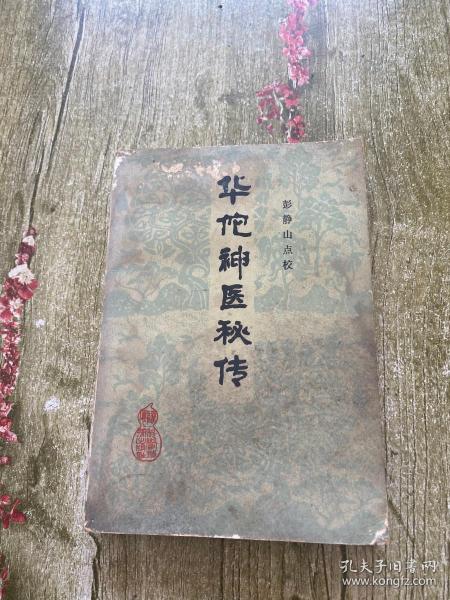 彭静山点校
华佗神医秘传
孔夫子旧书网
www.kongfz.com